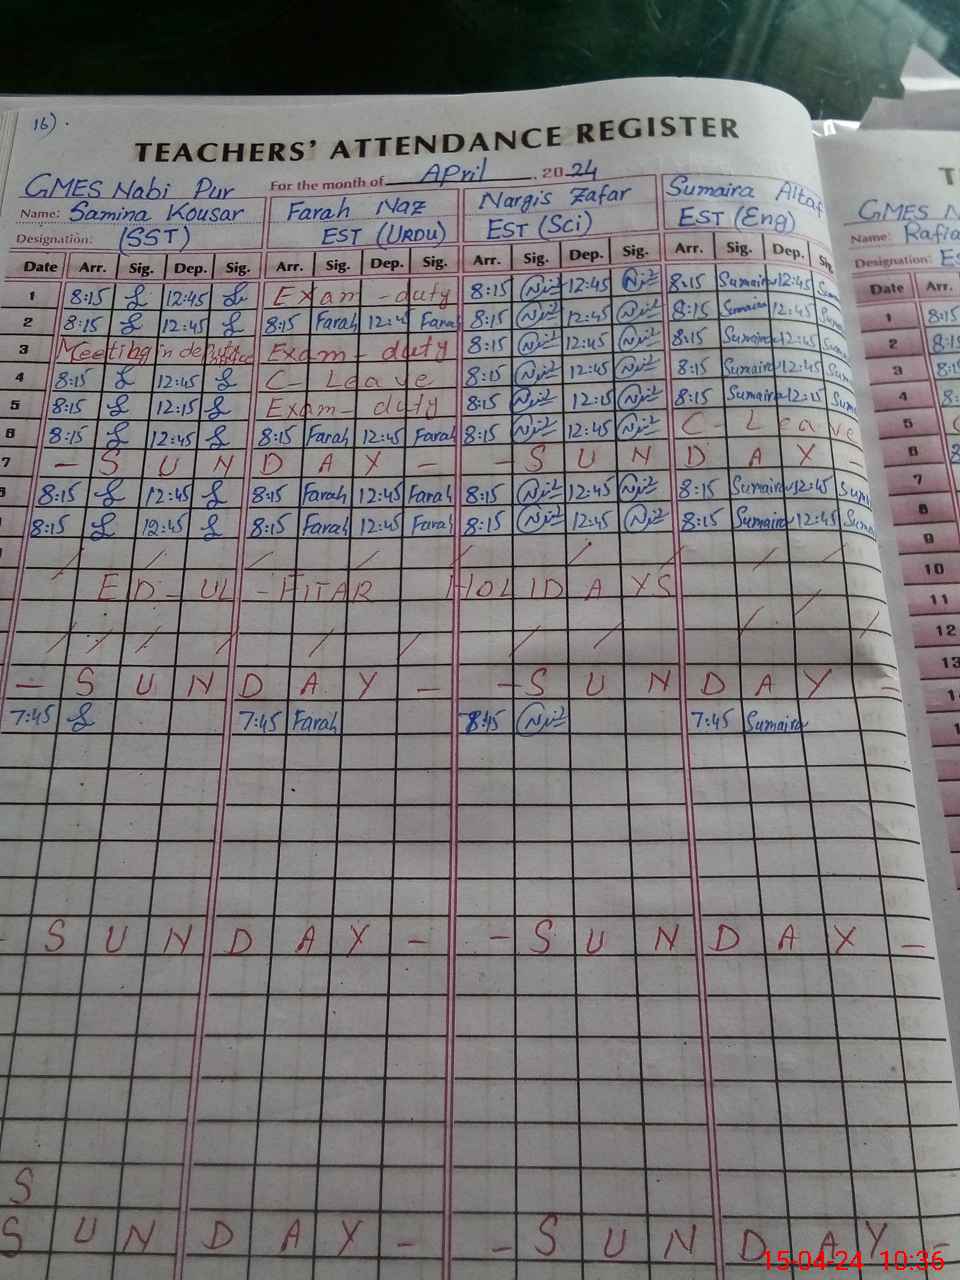 16).
TEACHERS' ATTENDANCE REGISTER
GMES Nabi Pur For the month of April, 2024
Name: Samina Kousar Farah Naz Nargis Zafar Sumaira Altaf
Designation: (SST) EST (URDU) EST (Sci) EST (Eng)
Date Arr. Sig. Dep. Sig. Arr. Sig. Dep. Sig. Arr. Sig. Dep. Sig. Arr. Sig. Dep. Sig.
1 8:15 12:45 Exam - duty 8:15 12:45 8:15 Sumaira 12:45
2 8:15 12:45 8:15 Farah 12:45 Farah 8:15 12:45 8:15 Sumaira 12:45
3 Meeting in Exam - duty 8:15 12:45 8:15 Sumaira 12:45
4 8:15 12:45 C- Leave 8:15 12:45 8:15 Sumaira 12:45
5 8:15 12:15 Exam - duty 8:15 12:15 8:15 Sumaira 12:15
6 8:15 12:45 8:15 Farah 12:45 Farah 8:15 12:45 C- Leave
7 - S U N D A Y - - S U N D A Y -
8:15 12:45 8:15 Farah 12:45 Farah 8:15 12:45 8:15 Sumaira 12:45
8:15 12:45 8:15 Farah 12:45 Farah 8:15 12:45 8:15 Sumaira 12:45
ED - UL - FITAR HOLIDAYS
- S U N D A Y - - S U N D A Y -
7:45 7:45 Farah 8:15 7:45 Sumaira
- S U N D A Y - - S U N D A Y -
S
S U N D A Y - - S U N D A Y -
GMES N
Name: Rafia
Designation: Es
Date Arr.
1 8:15
2 8:15
3
4
5
6
7
8
9
10
11
12
13
15-04-24 10:36